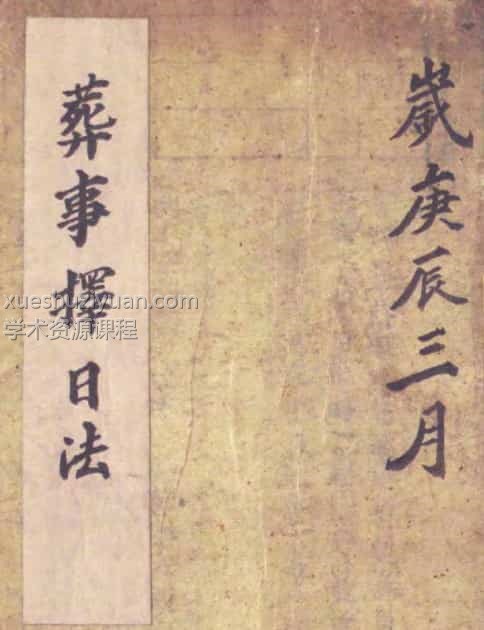 歲庚辰三月
葬事擇日法
xueshuziyuan.com
学术资源课程